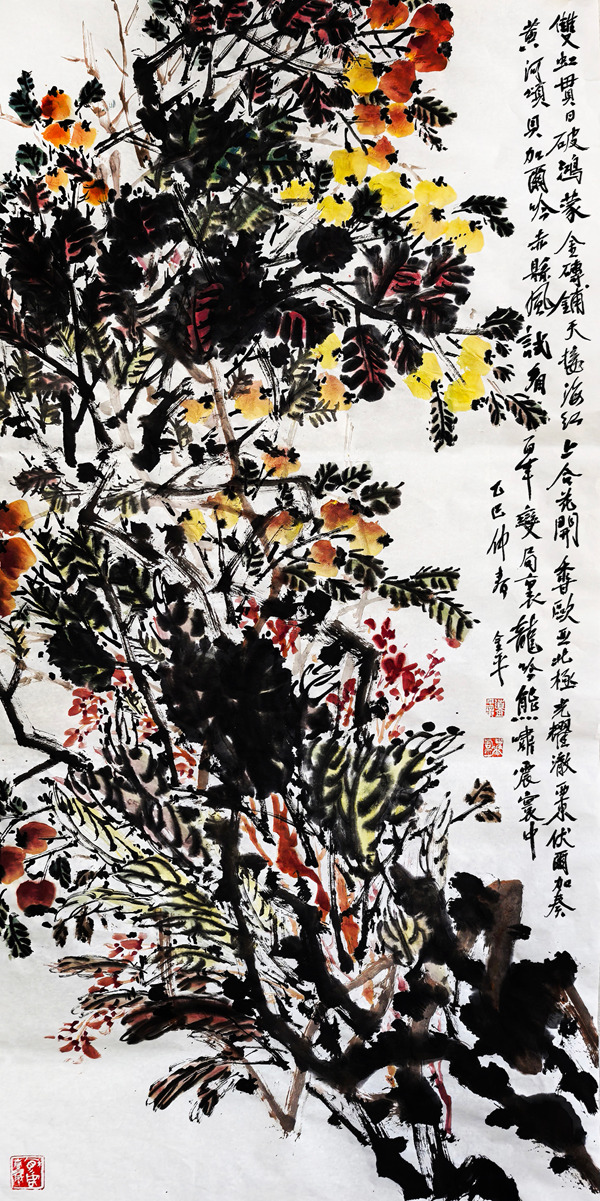 雙虹貫日破鴻蒙金磚鋪天接海紅上合花開香歐亞北極光耀澈粟末伏爾加奏
黃河頌貝加爾吟赤縣風試看百年變局裏龍吟熊嘯震寰中
乙巳仲春
金平